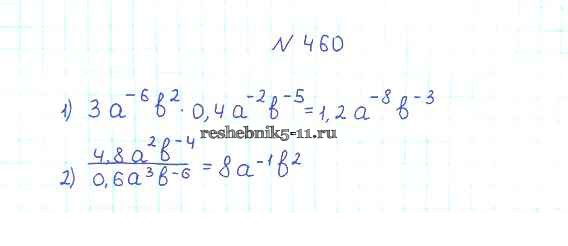 N 460
1) 3a⁻⁶b² · 0,4a⁻²b⁻⁵ = 1,2a⁻⁸b⁻³
reshebnik5-11.ru
2) 4,8a²b⁻⁴ / 0,6a³b⁻⁶ = 8a⁻¹b²